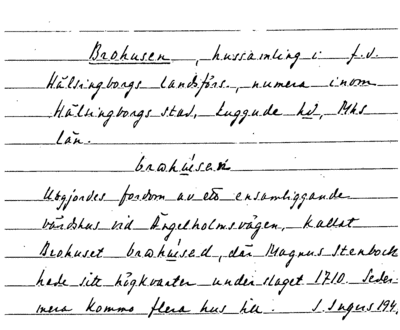 Brohusen, hussamling i f.d.
Hälsingborgs landsförs., numera inom
Hälsingborgs stad, Luggude hd, Mhs
län.
Utgjordes fordom av ett ensamliggande
värdshus vid Ängelholmsvägen, kallat
Brohuset, där Magnus Stenbock
hade sitt högkvarter under slaget 1710. Seder-
mera kommo flera hus till. S. Ingers 194